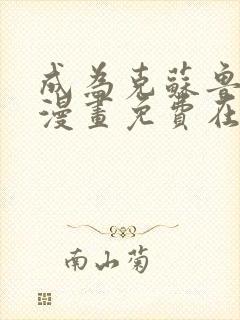 成為克蘇魯
漫畫免費在
南山菊